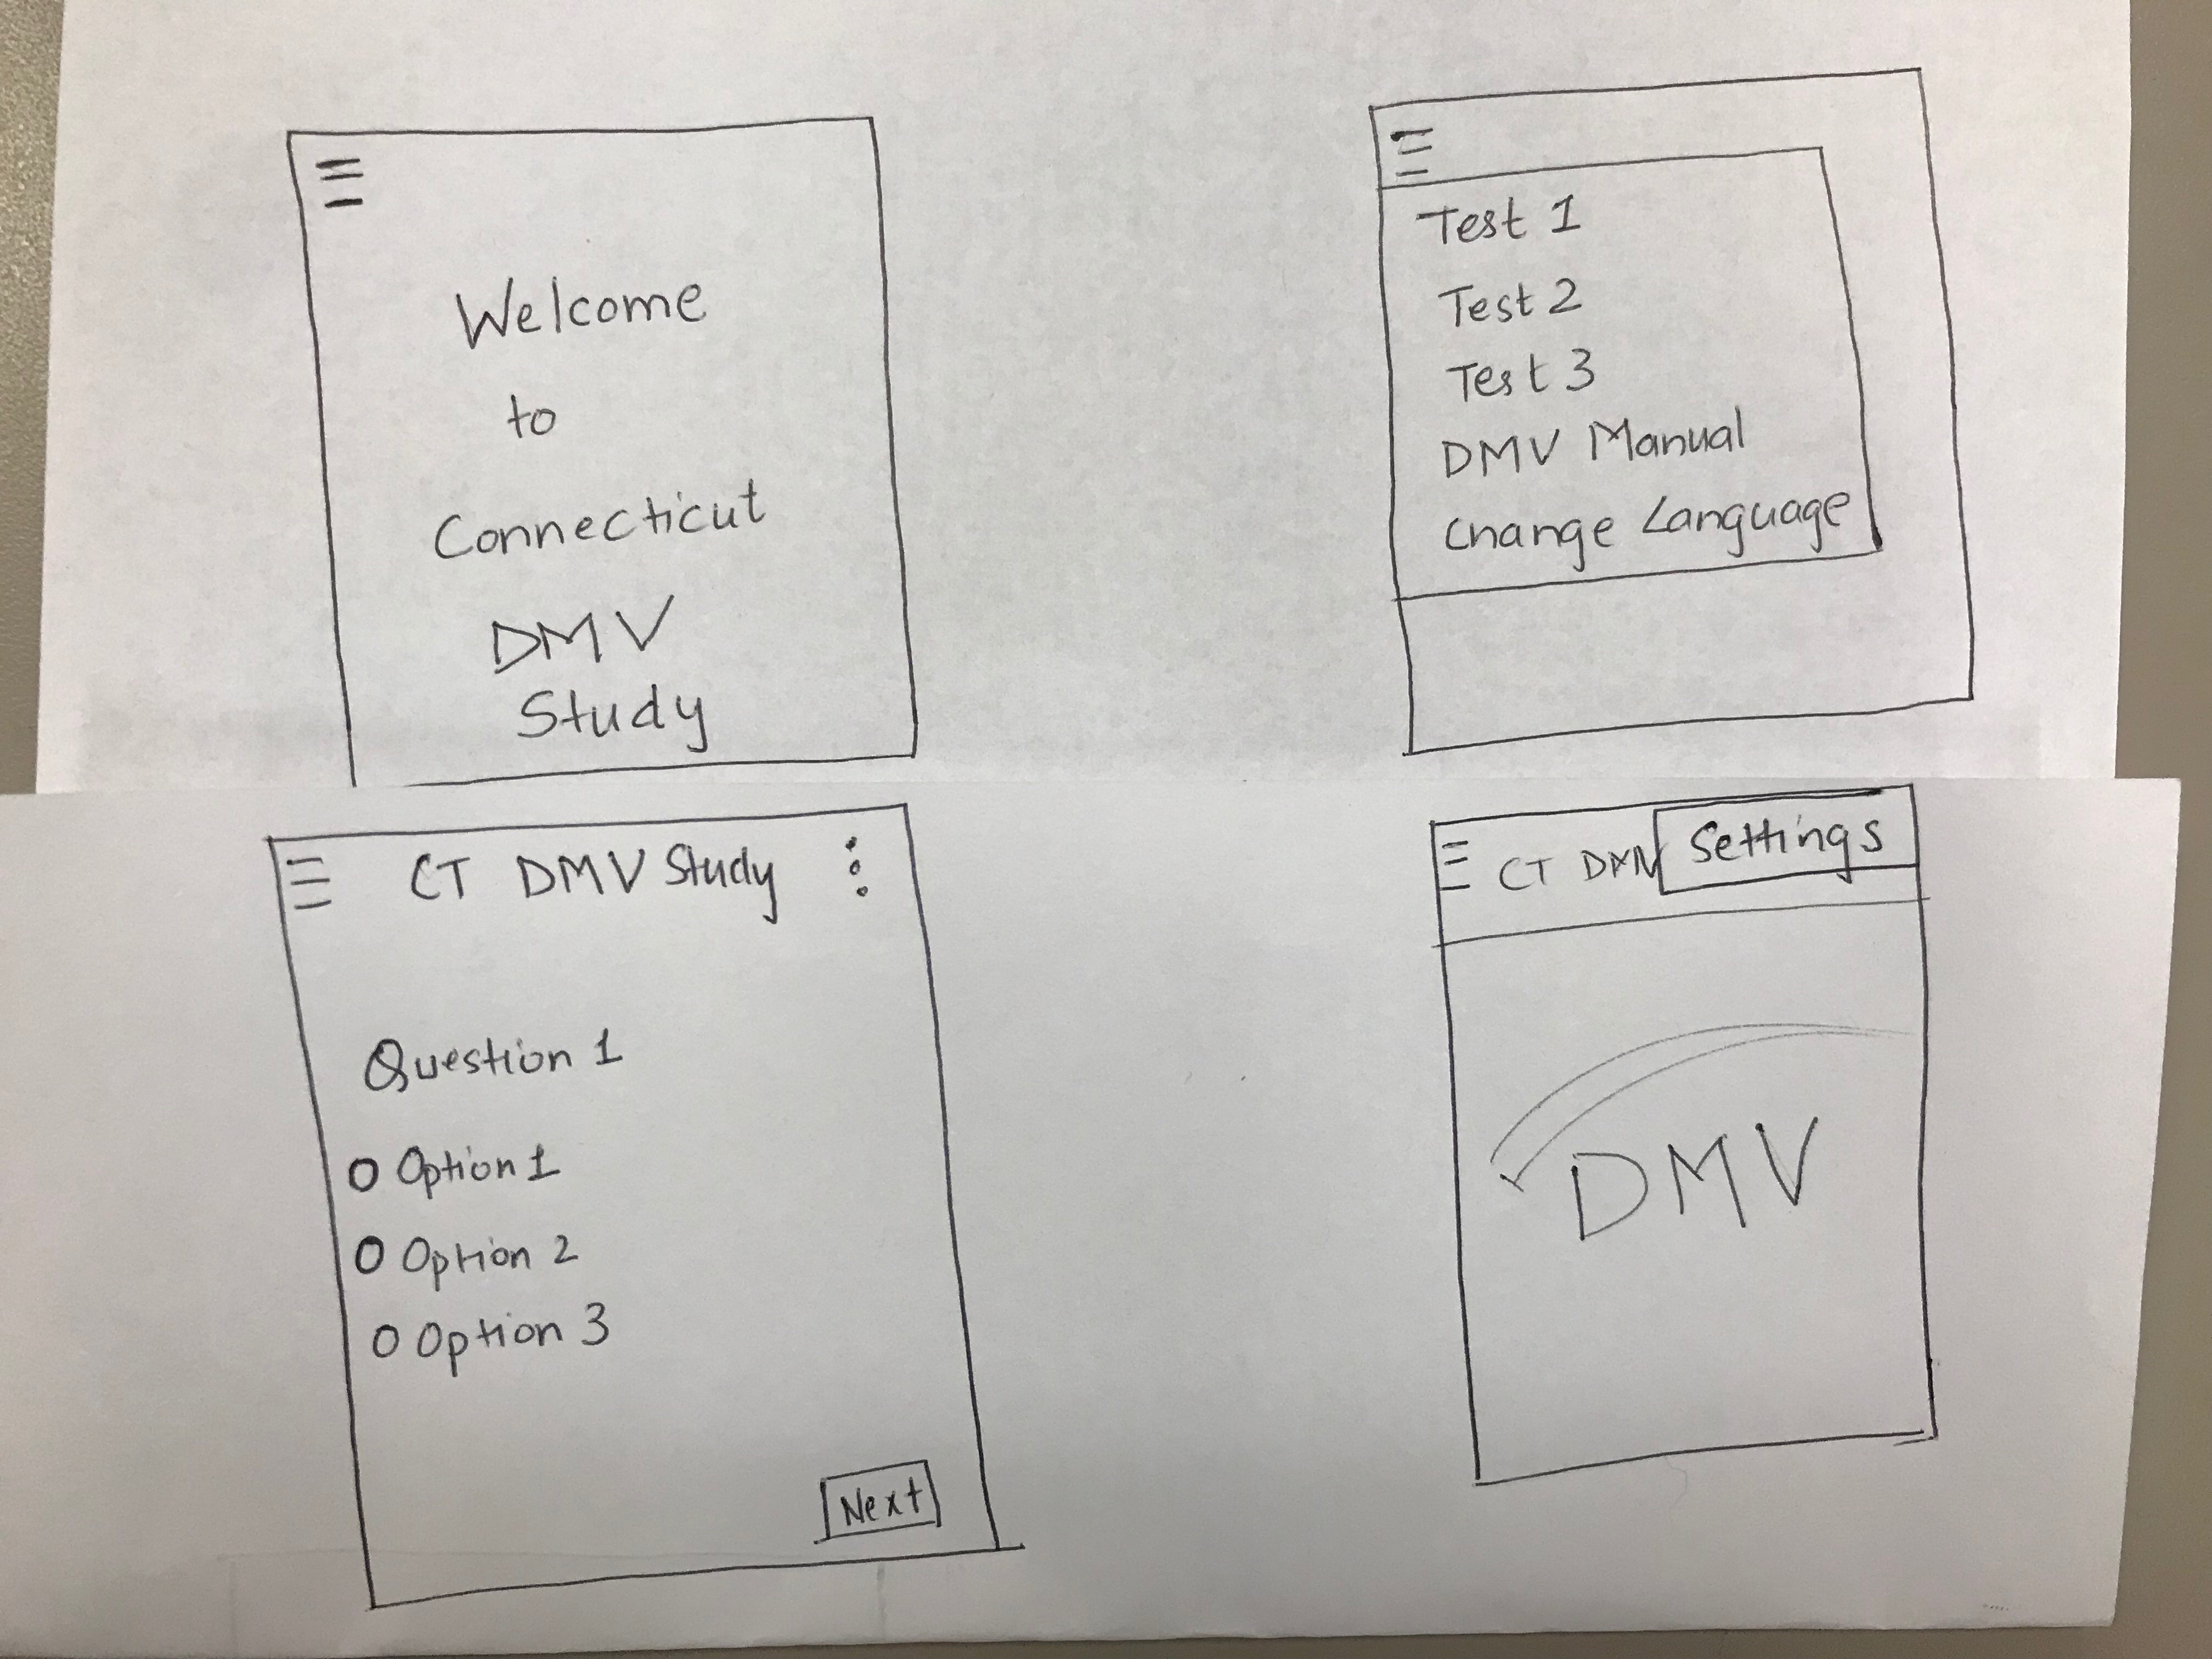 Welcome
to
Connecticut
DMV
Study
Test 1
Test 2
Test 3
DMV Manual
Change Language
CT DMV Study
Question 1
Option 1
Option 2
Option 3
Next
CT DMV Settings
DMV